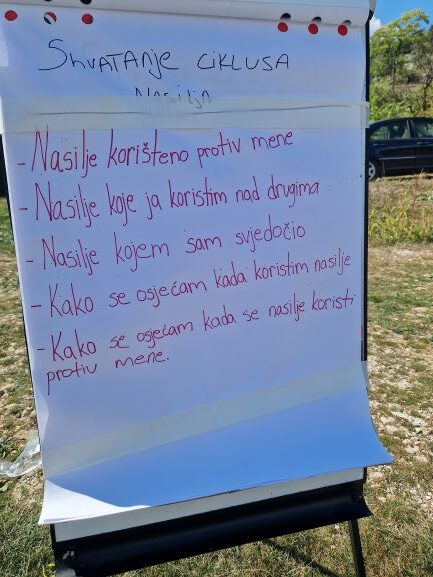 Shvatanje ciklusa
Nasilja
- Nasilje korišteno protiv mene
- Nasilje koje ja koristim nad drugima
- Nasilje kojem sam svjedočio
- Kako se osjećam kada koristim nasilje
- Kako se osjećam kada se nasilje koristi
protiv mene.